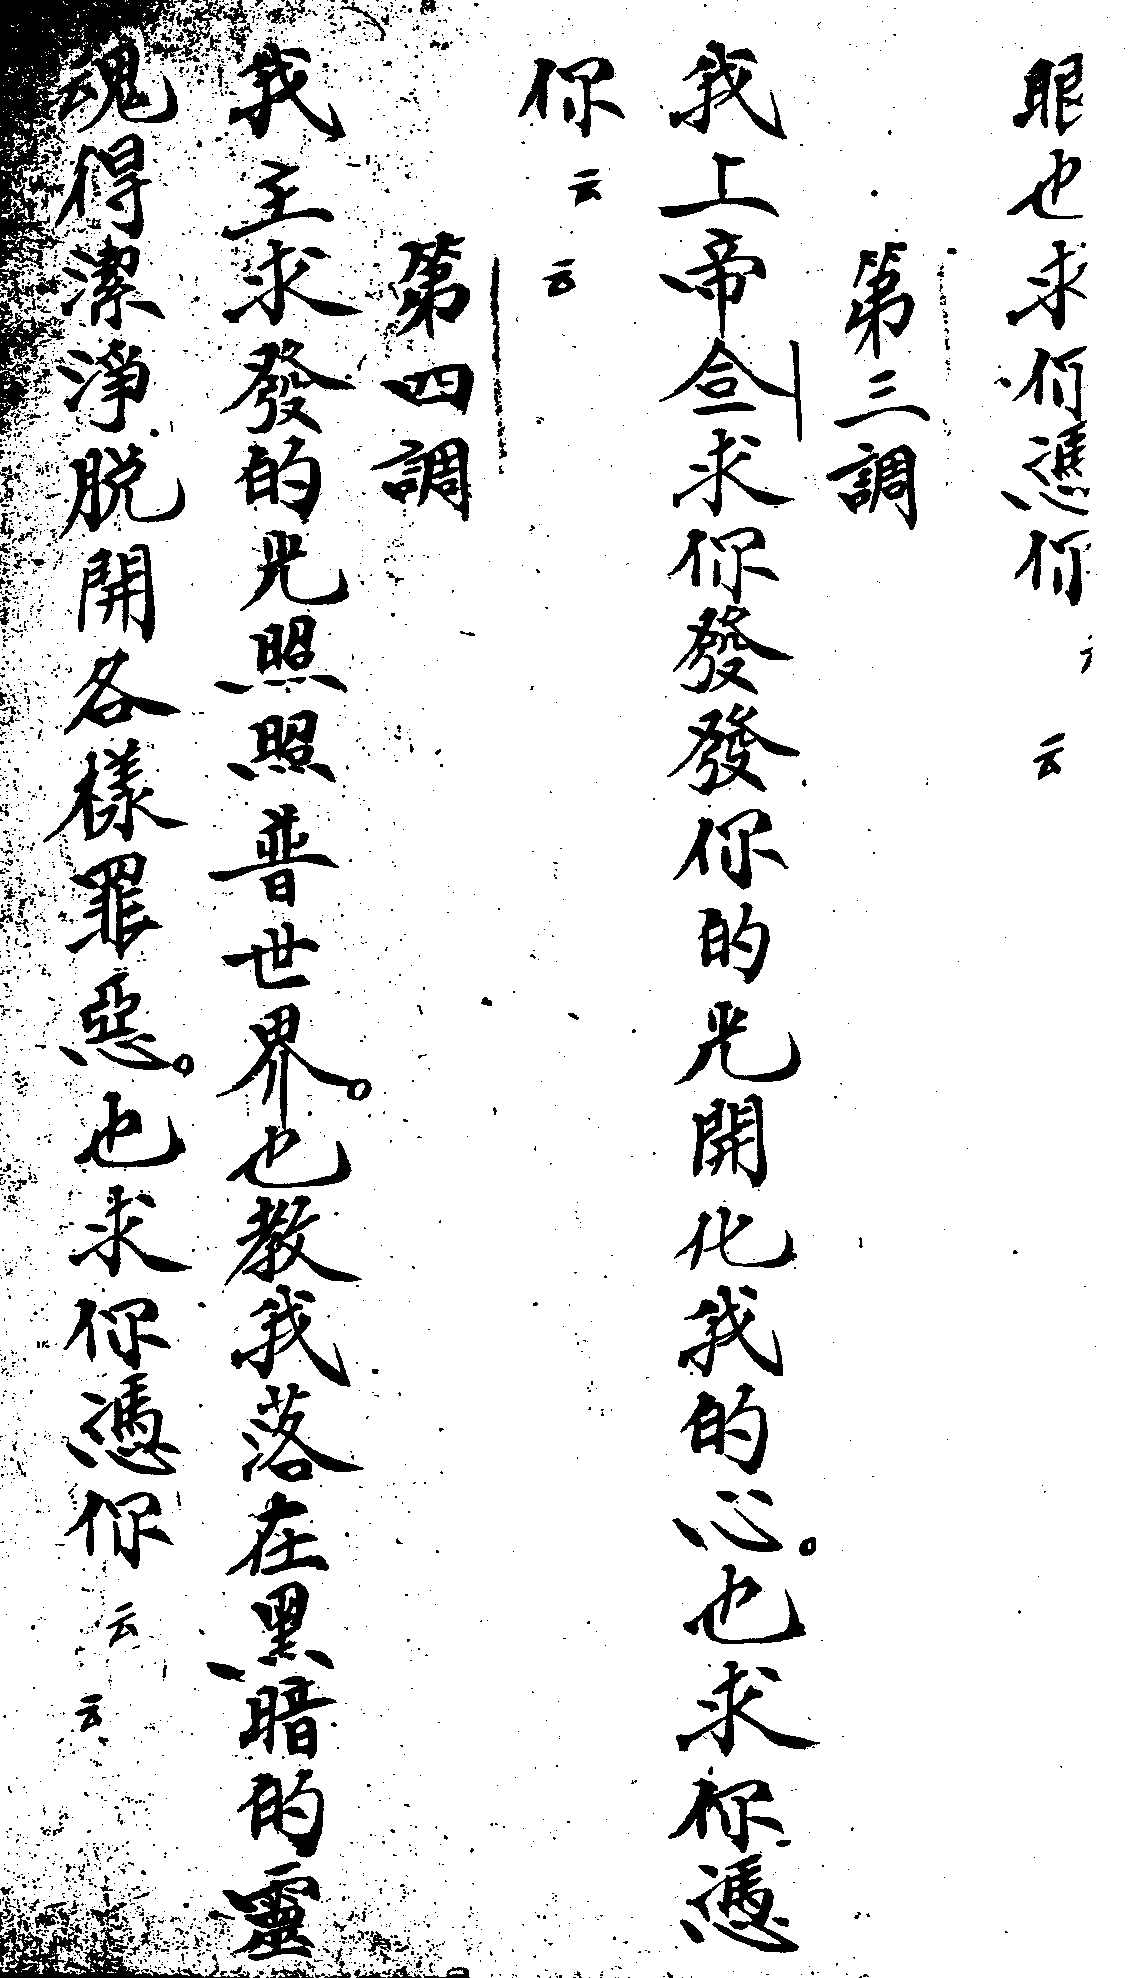 眼也求你憑你云云
第三調
我上帝亼求你發發你的光開化我的心。也求你憑
你云云
第四調
我主求發的光照照普世界。也教我落在黑暗的靈
魂得潔淨脫開各樣罪惡。也求你憑你云云